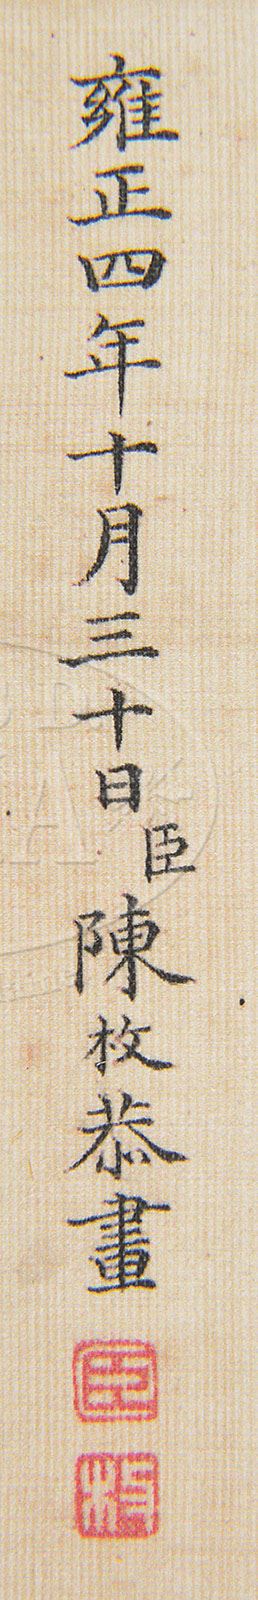 雍正四年十月三十日臣陳枚恭畫
臣
枚